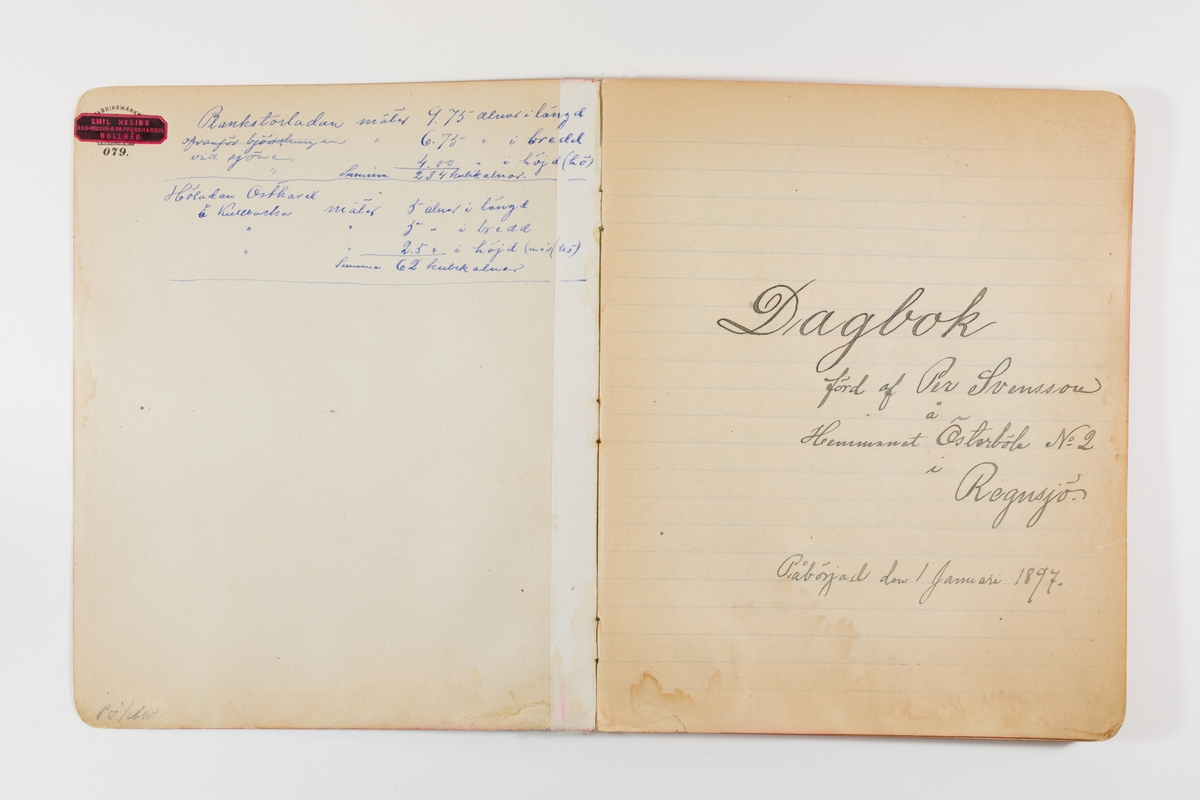 FABRIKSMÄRKE
EMIL HELINS
BOK-MUSIK-& PAPPERSHANDEL
BOLLNÄS
079.
Rankstorladan mäter 9.75 alnar i längd
ofvanför björkhagen " 6.75 " i bredd
vid sjön 4.00 " i höjd (hö)
" Summa 234 kubikalnar.
Höladan Östkarel
mäter 5 alnar i längd
" " 5 " i bredd
" " 2.5 " i höjd (hö)
Summa 62 kubikalnar
Dagbok
förd af Per Svensson
å
Hemmanet Österböle No 2
i
Regnsjö.
Påbörjad den 1 Januari 1897.